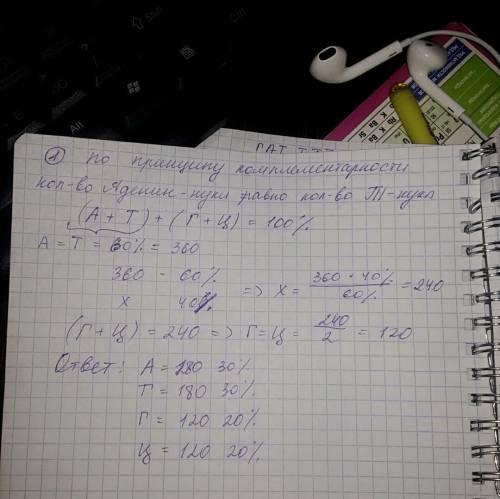 Shift
Ctrl
Alt
ГАТ ТТТ
① По принципу комплементарности
кол-во Аденин-нукл равно кол-во Т-нукл
(А + Т) + (Г + Ц) = 100%
А = Т = 30% = 360
360 - 60%
х 40% => х = 360 * 40% / 60% = 240
(Г + Ц) = 240 => Г = Ц = 240 / 2 = 120
Ответ: А = 180 30%
Т = 180 30%
Г = 120 20%
Ц = 120 20%